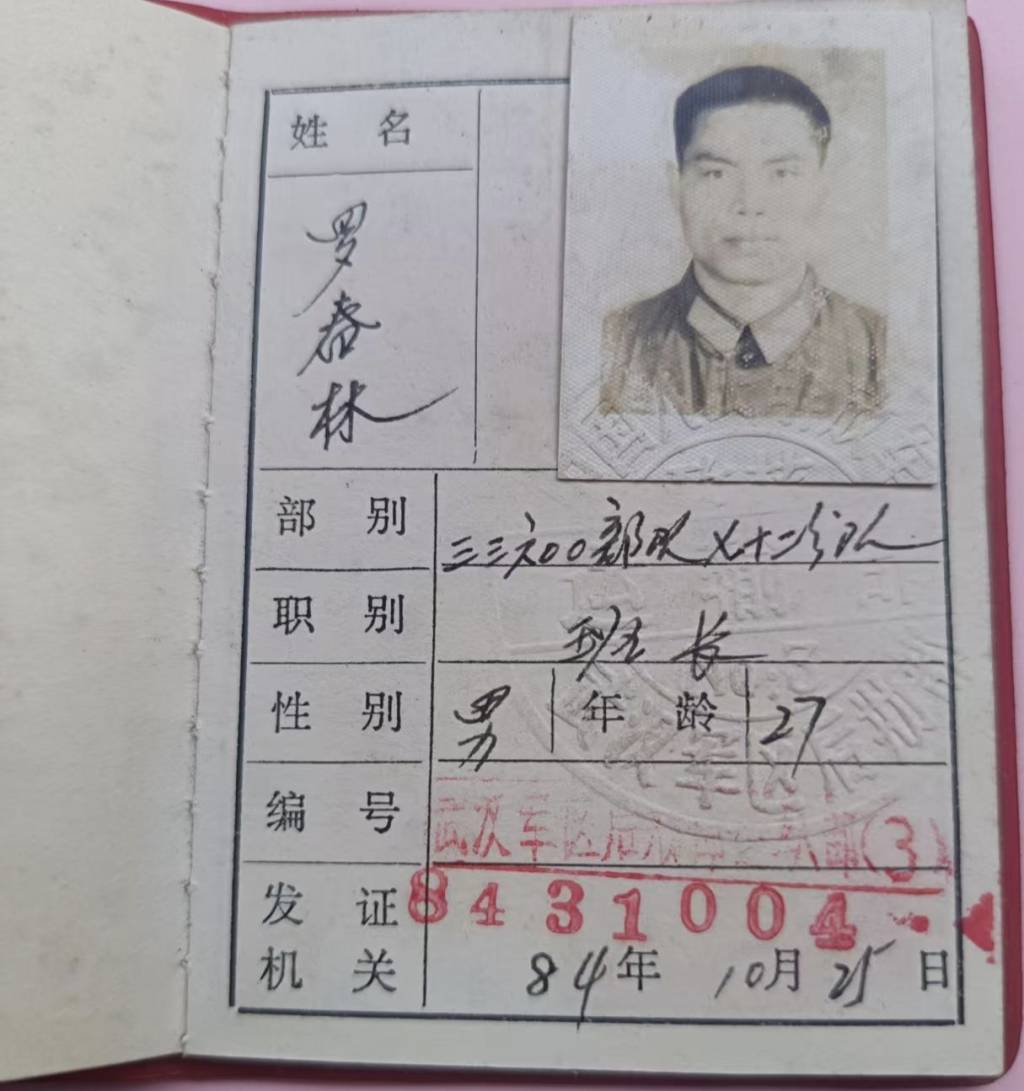 姓 名
罗春林
部 别 三三六00部队七十二分队
职 别 班长
性 别 男 年 龄 27
编 号 武汉军区后勤部(3)
发 证 8431004
机 关 84年10月25日